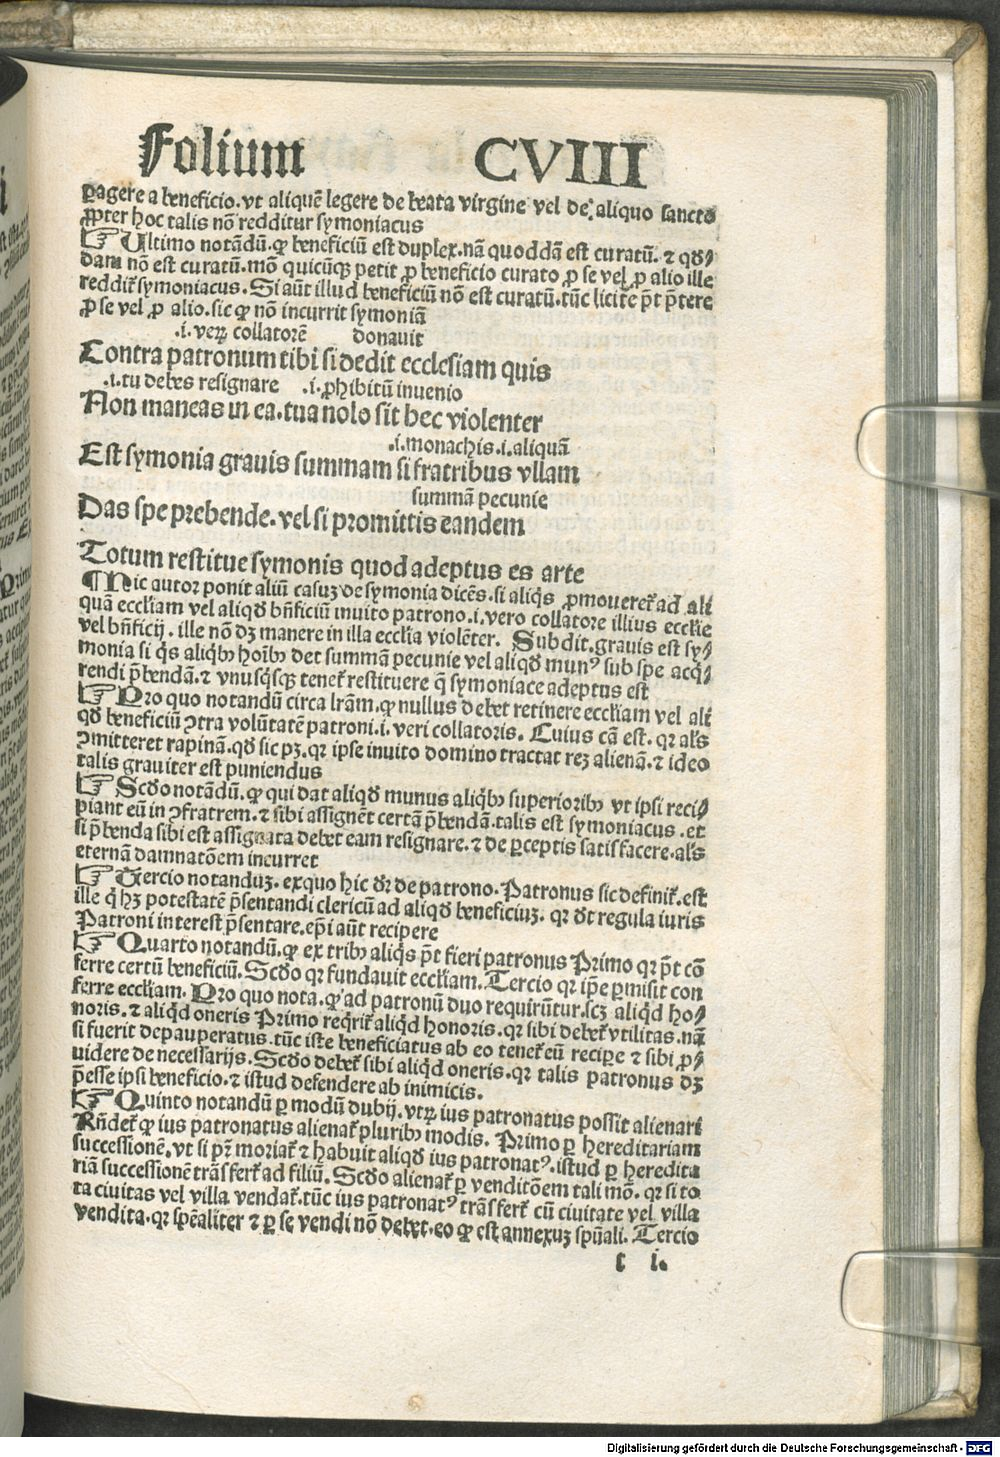 Folium CVIII
ꝑagere a beneficio. vt aliquē legere de beata virgine vel de aliquo sancto
ꝓpter hoc talis nō redditur symoniacus
☞ Ultimo notādū. ꝙ beneficiū est duplex. nā quoddā est curatū. ⁊ qd̛/
dam nō est curatū. mō quicūqꝫ petit ꝓ beneficio curato ꝓ se vel ꝓ alio ille
reddit᷑ symoniacus. Si aūt illud beneficiū nō est curatū. tūc licite p̄t p̄tere
ꝓ se vel ꝓ alio. sic ꝙ nō incurrit symoniā
.i. veꝝ collatorē donauit
Contra patronum tibi si dedit ecclesiam quis
.i. tu debes resignare .i. ꝓhibitū inuenio
Non maneas in ea. tua nolo sit hec violenter
.i. monachis .i. aliquā
Est symonia grauis summam si fratribus vllam
summā pecunie
Das spe prebende. vel si promittis eandem
Totum restitue symonis quod adeptus es arte
¶ Hic autor ponit aliū casuꝫ de symonia dicēs. si aliq̄s ꝓmoueret᷑ ad ali
quā eccłiam vel aliqd̛ bn̄ficiū inuito patrono .i. vero collatore illius ecclie
vel bn̄ficij. ille nō dꝫ manere in illa ecclia violēter. Subdit. grauis est sy/
monia si q̄s aliqbꝰ hoībꝰ det summā pecunie vel aliqd̛ munꝰ sub spe acq̄/
rendi p̄bendā. ⁊ vnusq̄sqꝫ tenet᷑ restituere q̄ symoniace adeptus est
☞ Pro quo notandū circa lr̄am. ꝙ nullus debet retinere eccłiam vel ali
qd̛ beneficiū ↄtra volūtatē patroni .i. veri collatoris. Cuius cā est. qꝛ al̄s
ↄmitteret rapinā. qd̛ sic pꝫ. qꝛ ipse inuito domino tractat reꝫ alienā. ⁊ ideo
talis grauiter est puniendus
☞ Scd̛o notādū. ꝙ qui dat aliqd̛ munus aliqbꝰ superioribꝰ vt ipsi reci/
piant eū in ↄfratrem. ⁊ sibi assignēt certā p̄bendā. talis est symoniacus. et
si p̄benda sibi est assignata debet eam resignare. ⁊ de ꝑceptis satisfacere. al̄s
eternā damnatōem incurret
☞ Tercio notanduꝫ. exquo hic dr̄ de patrono. Patronus sic definit᷑. est
ille q̄ hꝫ potestatē p̄sentandi clericū ad aliqd̛ beneficiuꝫ. qꝛ dt̄ regula iuris
Patroni interest p̄sentare. ep̄i aūt recipere
☞ Quarto notandū. ꝙ ex tribꝰ aliq̄s p̄t fieri patronus Primo qꝛ p̄t cō
ferre certū beneficiū. Scd̛o qꝛ fundauit eccłiam. Tercio qꝛ ip̄e ꝑmisit con
ferre eccłiam. Pro quo nota. ꝙ ad patronū duo requirūtur. scꝫ aliqd̛ ho/
noris. ⁊ aliqd̛ oneris Primo req̄rit᷑ aliqd̛ honoris. qꝛ sibi debet᷑ vtilitas. nā
si fuerit depauperatus. tūc iste beneficiatus ab eo tenet᷑ eū recipe ⁊ sibi ꝓ/
uidere de necessarijs. Scd̛o debet᷑ sibi aliqd̛ oneris. qꝛ talis patronus dꝫ
p̄esse ipsi beneficio. ⁊ istud defendere ab inimicis.
☞ Quinto notandū ꝑ modū dubij. vtꝝ ius patronatus possit alienari
Rn̄det᷑ ꝙ ius patronatus alienat᷑ pluribꝰ modis. Primo ꝑ hereditariam
successionē. vt si pr̄ moriat᷑ ⁊ habuit aliqd̛ ius patronatꝰ. istud ꝑ heredita
riā successionē trāsfert᷑ ad filiū. Scd̛o alienat᷑ ꝑ venditōem tali mō. qꝛ si to
ta ciuitas vel villa vendat᷑. tūc ius patronatꝰ trāsfert᷑ cū ciuitate vel villa
vendita. qꝛ spēaliter ⁊ ꝑ se vendi nō debet. eo ꝙ est annexuꝫ spūali. Tercio
t i.
Digitalisierung gefördert durch die Deutsche Forschungsgemeinschaft - DFG